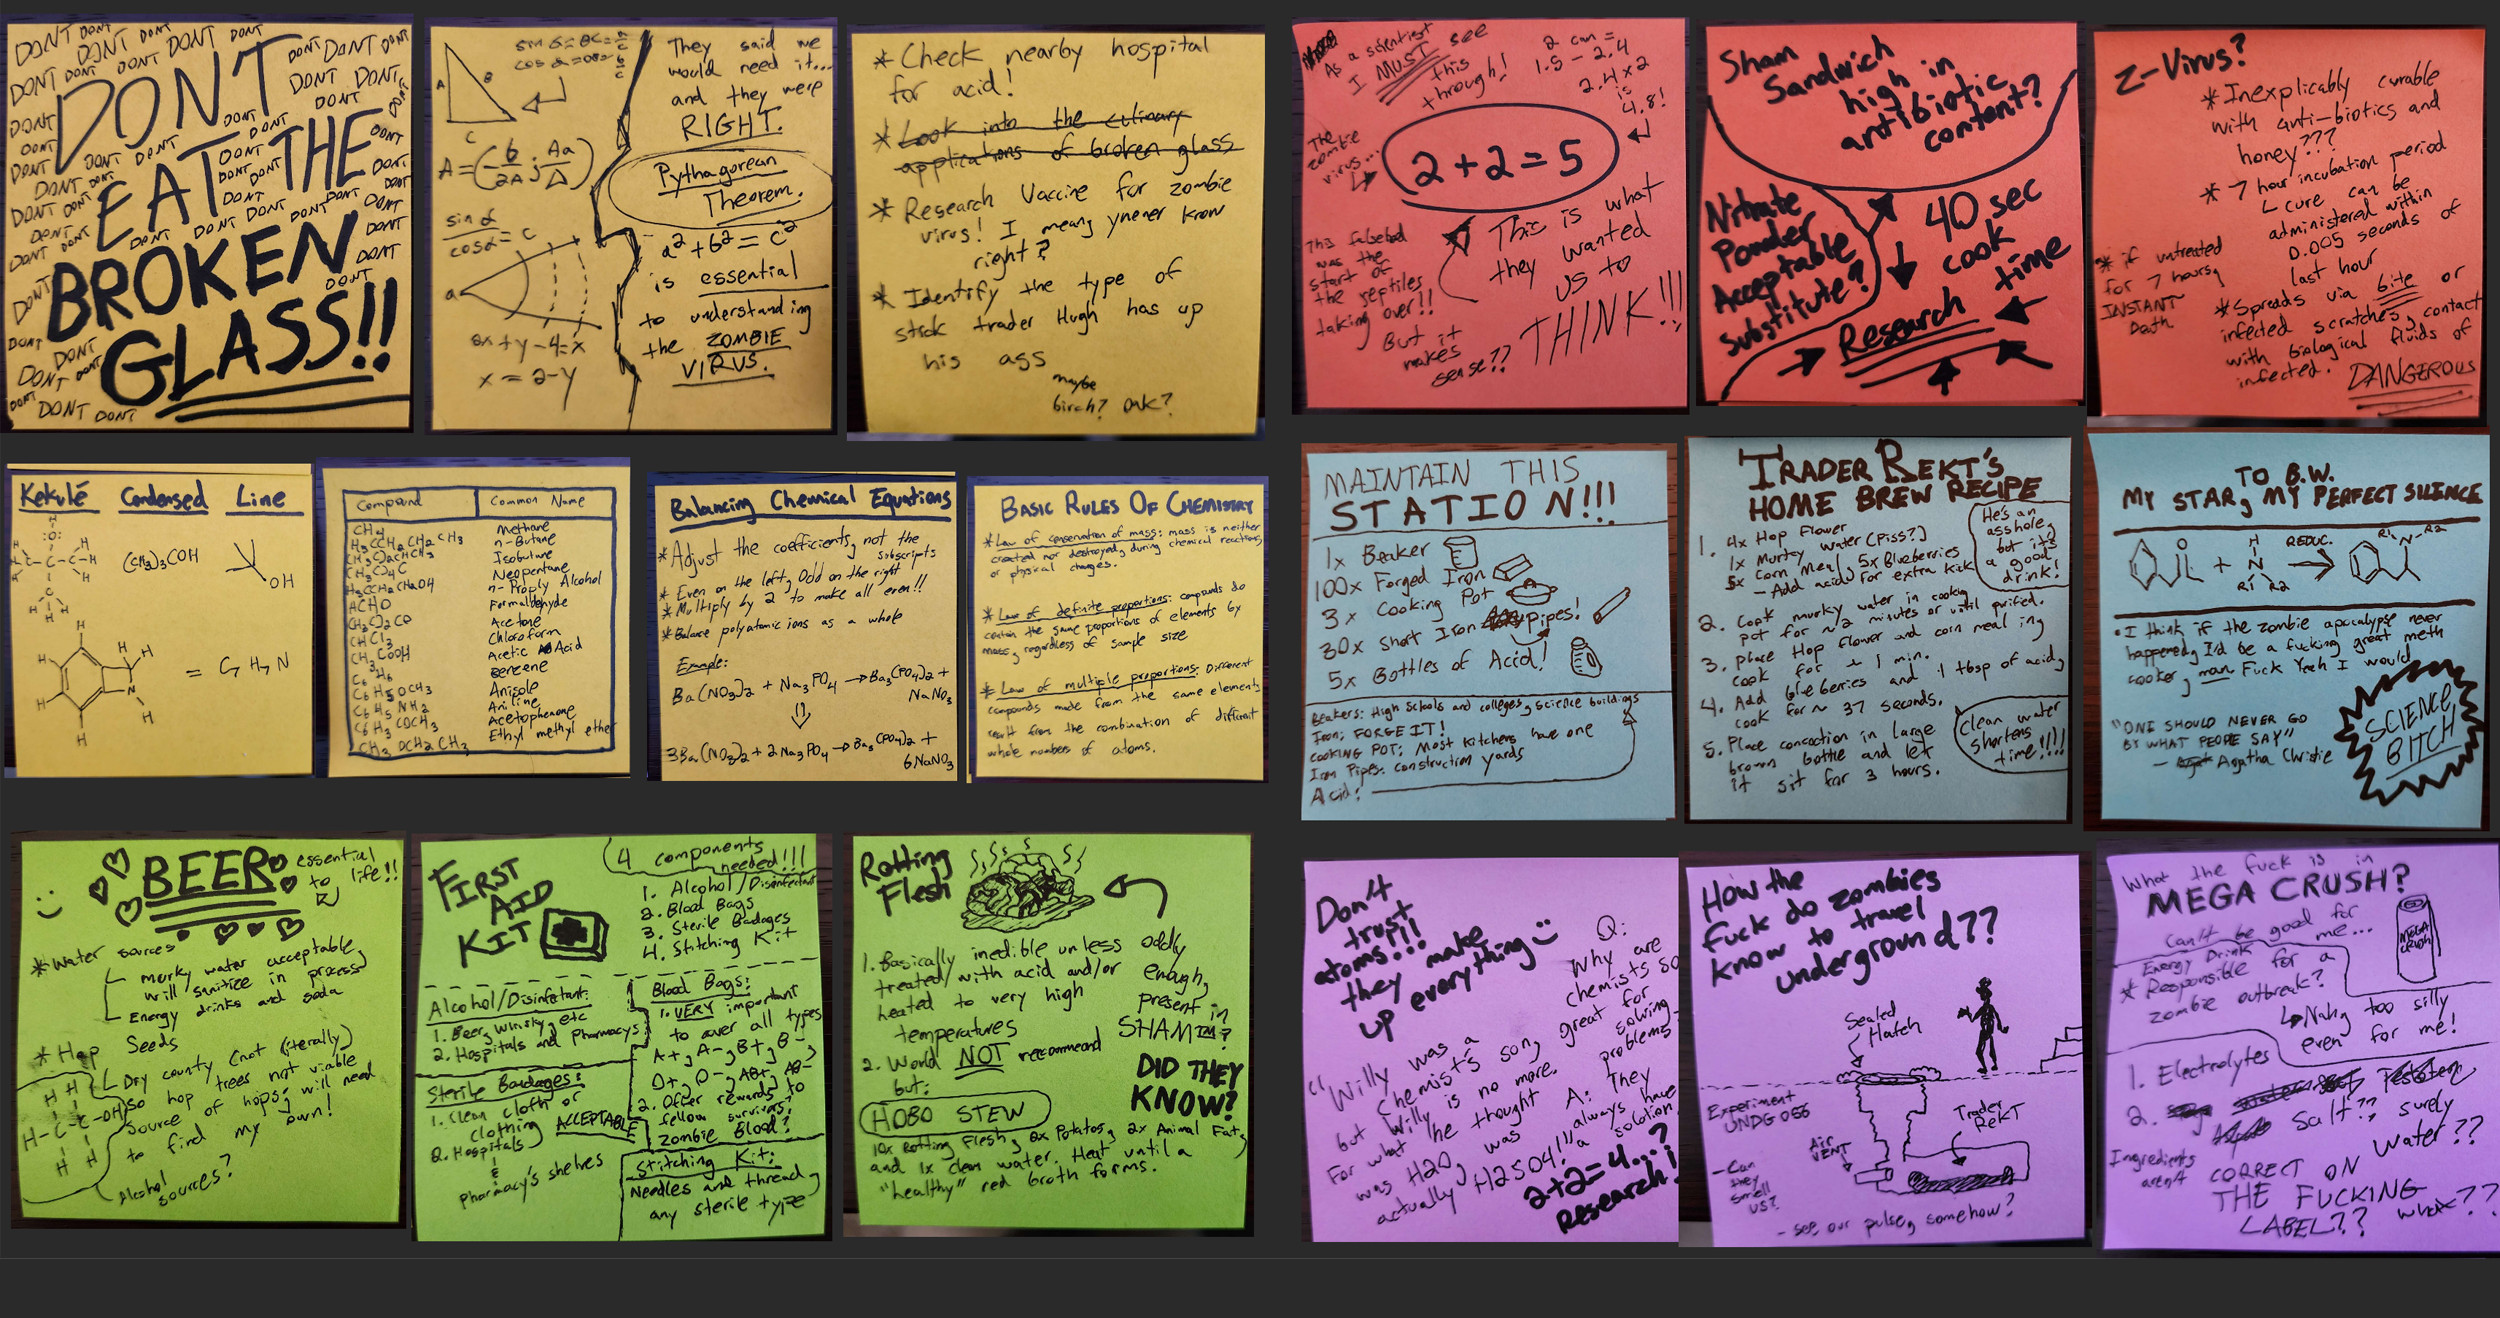 DONT DONT DONT DONT
DONT
EAT THE
BROKEN
GLASS!!
A
B
C
They said we
would need it...
and they were
RIGHT.
Pythagorean
Theorem.
a² + b² = c²
is essential
to understanding
the ZOMBIE
VIRUS.
sin α
cos α = C
a
2x + y - 4 = x
x = 2 - y
* Check nearby hospital
for acid!
* Look into the culinary
applications of broken glass
* Research Vaccine for zombie
virus! I mean ynever know
right?
* Identify the type of
stick trader Hugh has up
his ass
maybe
birch? oak?
As a scientist
I MUST see
this
through!
2 can =
1.5 - 2.4
2.4 x 2
is
4.8!
The
zombie
virus...
2 + 2 = 5
This is what
they wanted
us to
THINK!!!
This
was the
start of
the reptiles
taking over!!
But it
makes
sense??
Sham
Sandwich
high in
antibiotic
content?
Nitrate
Powder
Acceptable
Substitute?
40 sec
cook
time
Research
Z-Virus?
* Inexplicably curable
with anti-biotics and
honey???
* 7 hour incubation period
cure can be
administered within
0.005 seconds of
last hour
* if untreated
for 7 hours,
INSTANT
Death
* Spreads via bite or
infected scratches, contact
with biological fluids of
infected.
DANGEROUS
Kekulé Condensed Line
(CH₃)₃COH
OH
= C₇H₇N
Compound Common Name
CH₄ Methane
H₃CCH₂CH₂CH₃ n-Butane
(CH₃)₂CHCH₃ Isobutane
(CH₃)₄C Neopentane
H₃CCH₂CH₂OH n-Proply Alcohol
HCHO Formaldehyde
(CH₃)₂CO Acetone
CHCl₃ Chloroform
CH₃COOH Acetic Acid
C₆H₆ Benzene
C₆H₅OCH₃ Anisole
C₆H₅NH₂ Aniline
C₆H₅COCH₃ Acetophenone
CH₃OCH₂CH₃ Ethyl methyl ether
Balancing Chemical Equations
* Adjust the coefficients, not the
subscripts
* Even on the left, Odd on the right
* Multiply by 2 to make all even!!
* Balance polyatomic ions as a whole
Example:
Ba(NO₃)₂ + Na₃PO₄ → Ba₃(PO₄)₂ +
NaNO₃
3Ba(NO₃)₂ + 2Na₃PO₄ → Ba₃(PO₄)₂ +
6NaNO₃
BASIC RULES OF CHEMISTRY
* Law of conservation of mass: mass is neither
created nor destroyed, during chemical reactions
or physical changes.
* Law of definite proportions: compounds do
contain the same proportions of elements by
mass, regardless of sample size
* Law of multiple proportions: Different
compounds made from the same elements
result from the combination of different
whole numbers of atoms.
MAINTAIN THIS
STATION!!!
1x Beaker
100x Forged Iron
3x Cooking Pot
30x Short Iron Pipes!
5x Bottles of Acid!
Beakers: High Schools and colleges, science buildings
Iron: FORGE IT!
COOKING POT: Most kitchens have one
Iron Pipes: construction yards
Acid:
TRADER REKT'S
HOME BREW RECIPE
He's an
asshole,
but it's
a good
drink!
1. 4x Hop Flower
1x Murky Water (Piss?)
5x Corn Meal, 5x Blueberries
- Add acid for extra kick
2. Cook murky water in cooking
pot for ~2 minutes or until purified.
3. Place Hop flower and corn meal in,
cook for ~ 1 min.
4. Add blueberries and 1 tbsp of acid,
cook for ~ 37 seconds.
5. Place concoction in large
brown bottle and let
it sit for 3 hours.
Clean water
shortens
time!!!!
TO B.W.
MY STAR, MY PERFECT SILENCE
O
+
H
N
R1 R2
REDUC.
R1 N R2
• I think if the zombie apocalypse never
happened, I'd be a fucking great meth
cooker, man. Fuck Yeah I would
"ONE SHOULD NEVER GO
BY WHAT PEOPLE SAY"
- Agatha Christie
SCIENCE
BITCH
BEER
essential
to
life!!
* Water sources
murky water acceptable,
will sanitize in process
Energy drinks and soda
* Hop Seeds
Dry county (not literally)
so hop trees not viable
source of hops; will need
to find my own!
H H
H-C-C-OH
H H
Alcohol
sources?
FIRST
AID
KIT
4 components
needed!!!
1. Alcohol/Disinfectant
2. Blood Bags
3. Sterile Badages
4. Stitching Kit
Alcohol/Disinfectant:
1. Beer, whisky, etc
2. Hospitals and Pharmacys
Sterile Bandages:
1. Clean cloth or
clothing ACCEPTABLE
2. Hospitals
&
pharmacy's shelves
Blood Bags:
1. VERY important
to over all types
A+, A-, B+, B-,
O+, O-, AB+, AB-
2. Offer rewards to
fellow survivors?
Zombie Blood?
Stitching Kit:
Needles and thread,
any sterile type
Rotting
Flesh
1. Basically inedible unless
treated with acid and/or
heated to very high
temperatures
oddly
enough,
present in
SHAM™?
DID THEY
KNOW?
2. World NOT recommend
but:
HOBO STEW
10x Rotting Flesh, 2x Potatos, 2x Animal Fat,
and 1x clean water. Heat until a
"healthy" red broth forms.
Don't
trust
atoms!!!
... they make
up everything
Q:
Why are
chemists so
great for
solving
problems
A: They
always have
a solution
"Willy was a
Chemist's son,
but Willy is no more.
For what he thought
was H2O, was
actually H2SO4!"
2+2=4...?
Research!
How the
fuck do zombies
know to travel
underground??
Sealed
Hatch
Experiment
UNDG 056
Air
VENT
Trader
REKT
- Can
they
smell
us?
- see our pulse, somehow?
What the fuck is in
MEGA CRUSH?
Can't be good for
me...
MEGA
CRUSH
Energy Drink
* Responsible for a
zombie outbreak?
Nah, too silly
even for me!
1. Electrolytes
2. Salt?? Surely
Water??
Ingredients
aren't
CORRECT ON
THE FUCKING
LABEL?? what??